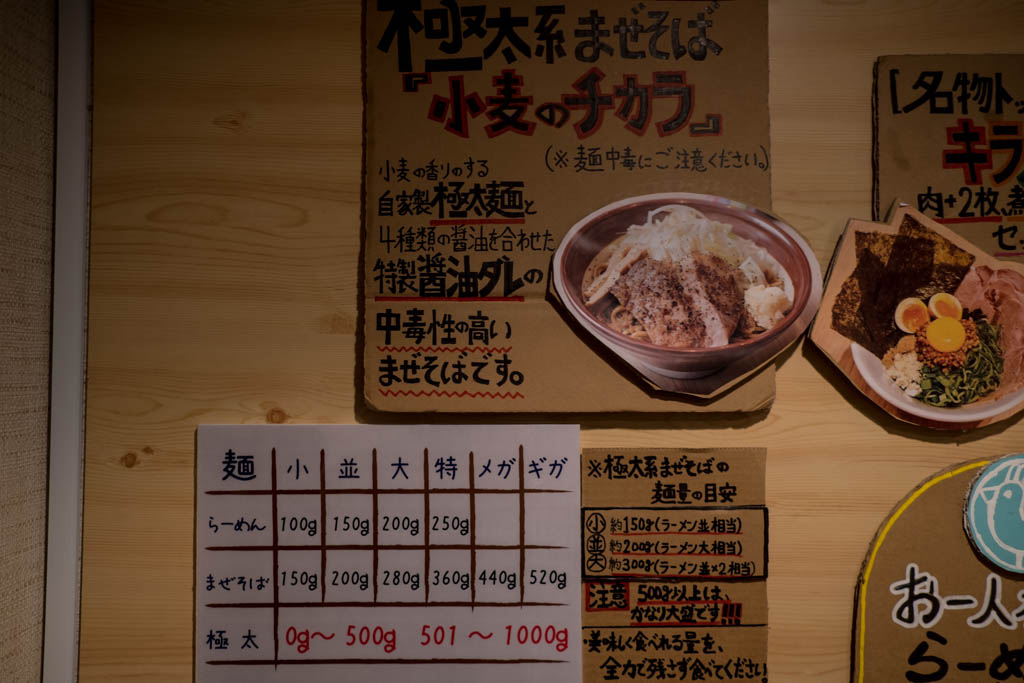 極太系まぜそば
『小麦のチカラ』
(※麺中毒にご注意ください。)
小麦の香りのする
自家製極太麺と
4種類の醤油を合わせた
特製醤油ダレの
中毒性の高い
まぜそばです。
「名物ト
キラ
肉+2枚、煮
セ
麺 小 並 大 特 メガ ギガ
らーめん 100g 150g 200g 250g
まぜそば 150g 200g 280g 360g 440g 520g
極太 0g〜500g 501〜1000g
※極太系まぜそばの
麺量の目安
小 約150g(ラーメン並相当)
並 約200g(ラーメン大相当)
大 約300g(ラーメン並×2相当)
注意 500g以上は、
かなり大盛です!!!
・美味しく食べれる量を、
全力で残さず食べてください
お一人
らーめ